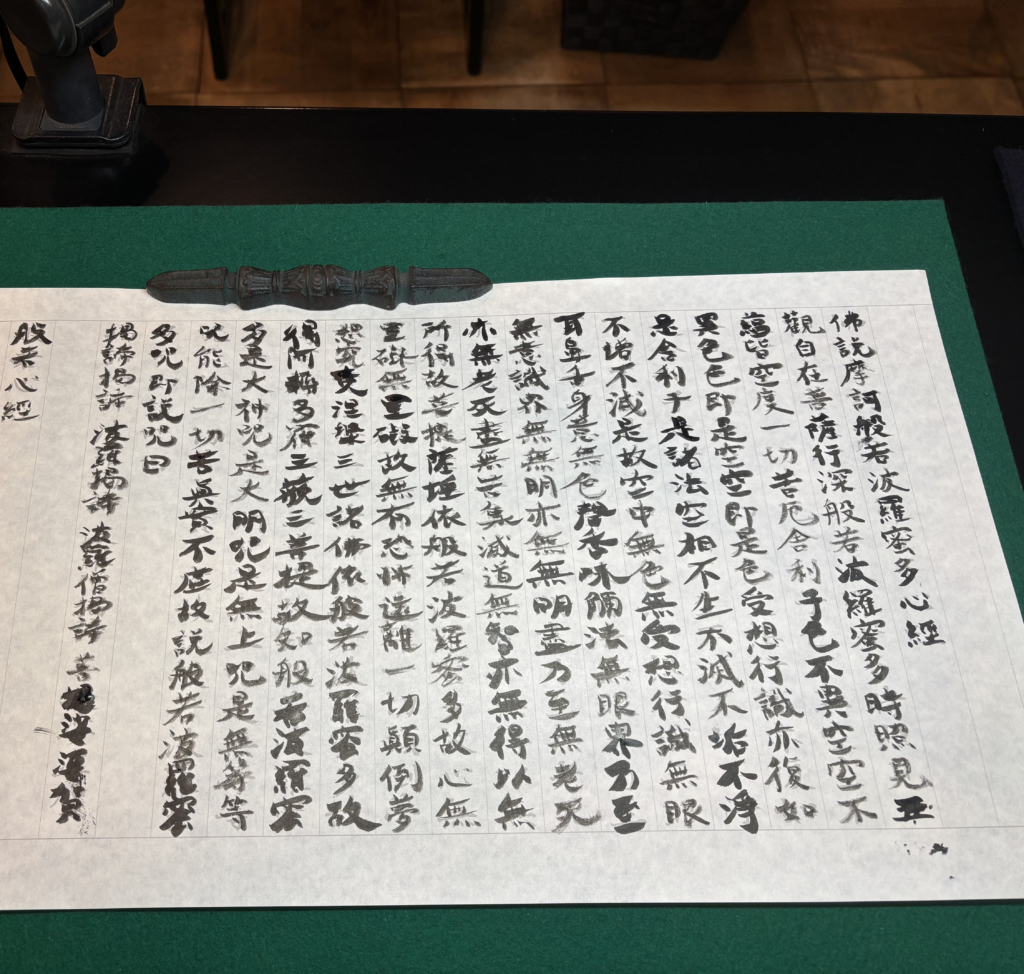 佛説摩訶般若波羅蜜多心經
觀自在菩薩行深般若波羅蜜多時照見五
蘊皆空度一切苦厄舍利子色不異空空不
異色色即是空空即是色受想行識亦復如
是舍利子是諸法空相不生不滅不垢不淨
不増不減是故空中無色無受想行識無眼
耳鼻舌身意無色聲香味觸法無眼界乃至
無意識界無無明亦無無明盡乃至無老死
亦無老死盡無苦集滅道無智亦無得以無
所得故菩提薩埵依般若波羅蜜多故心無
罣礙無罣礙故無有恐怖遠離一切顛倒夢
想究竟涅槃三世諸佛依般若波羅蜜多故
得阿耨多羅三藐三菩提故知般若波羅蜜
多是大神呪是大明呪是無上呪是無等等
呪能除一切苦真實不虛故説般若波羅蜜
多呪即説呪曰
揭諦揭諦 波羅揭諦 波羅僧揭諦 菩提娑婆賀
般若心經